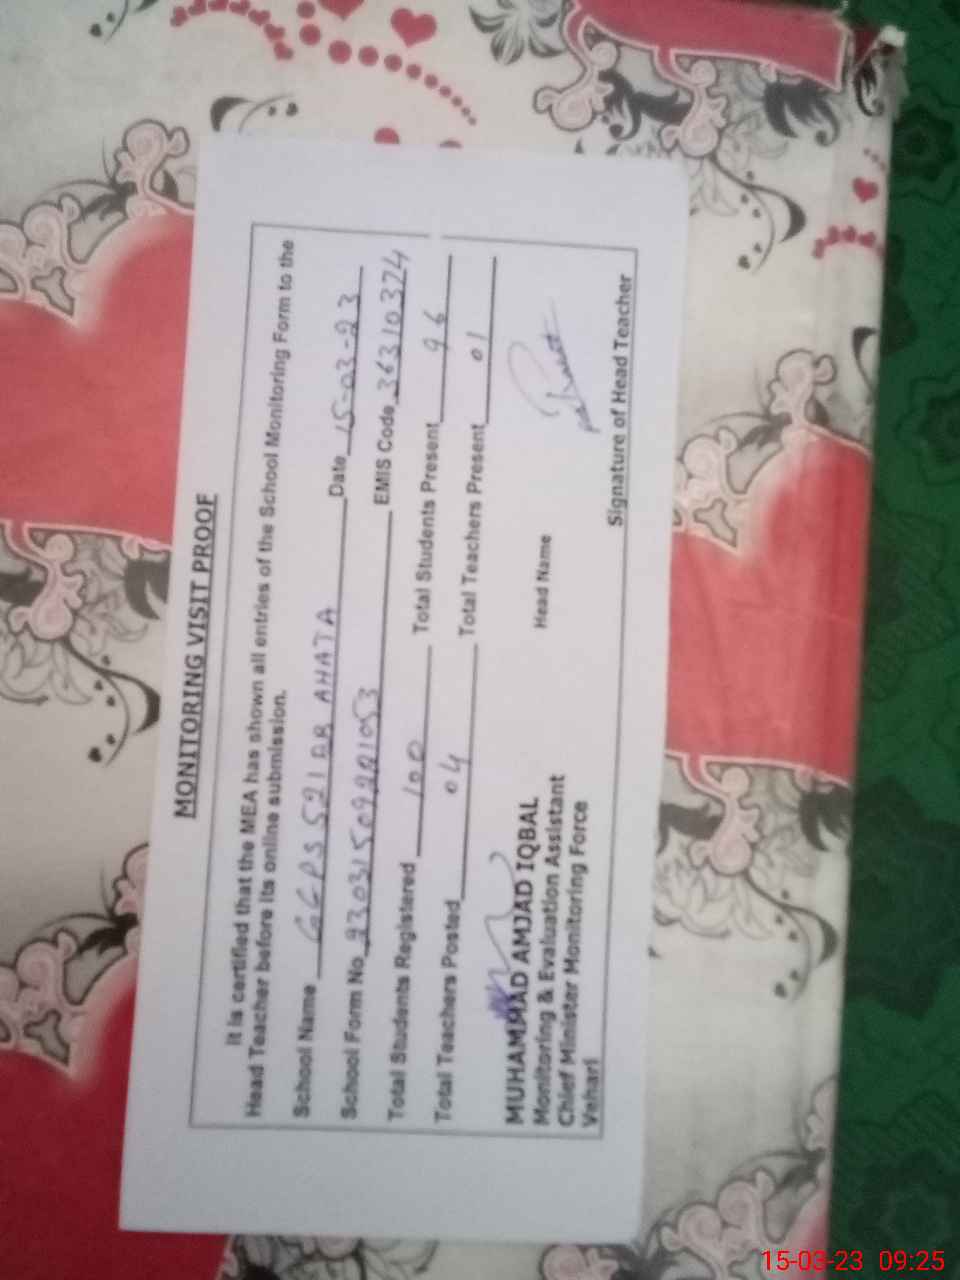 MONITORING VISIT PROOF
It is certified that the MEA has shown all entries of the School Monitoring Form to the
Head Teacher before its online submission.
School Name GGPS 521 AHATA Date 15-03-23
School Form No. EMIS Code 36310374
Total Students Registered 100 Total Students Present 96
Total Teachers Posted 04 Total Teachers Present 01
MUHAMMAD AMJAD IQBAL
Monitoring & Evaluation Assistant Head Name
Chief Minister Monitoring Force
Vehari Signature of Head Teacher
15-03-23 09:25